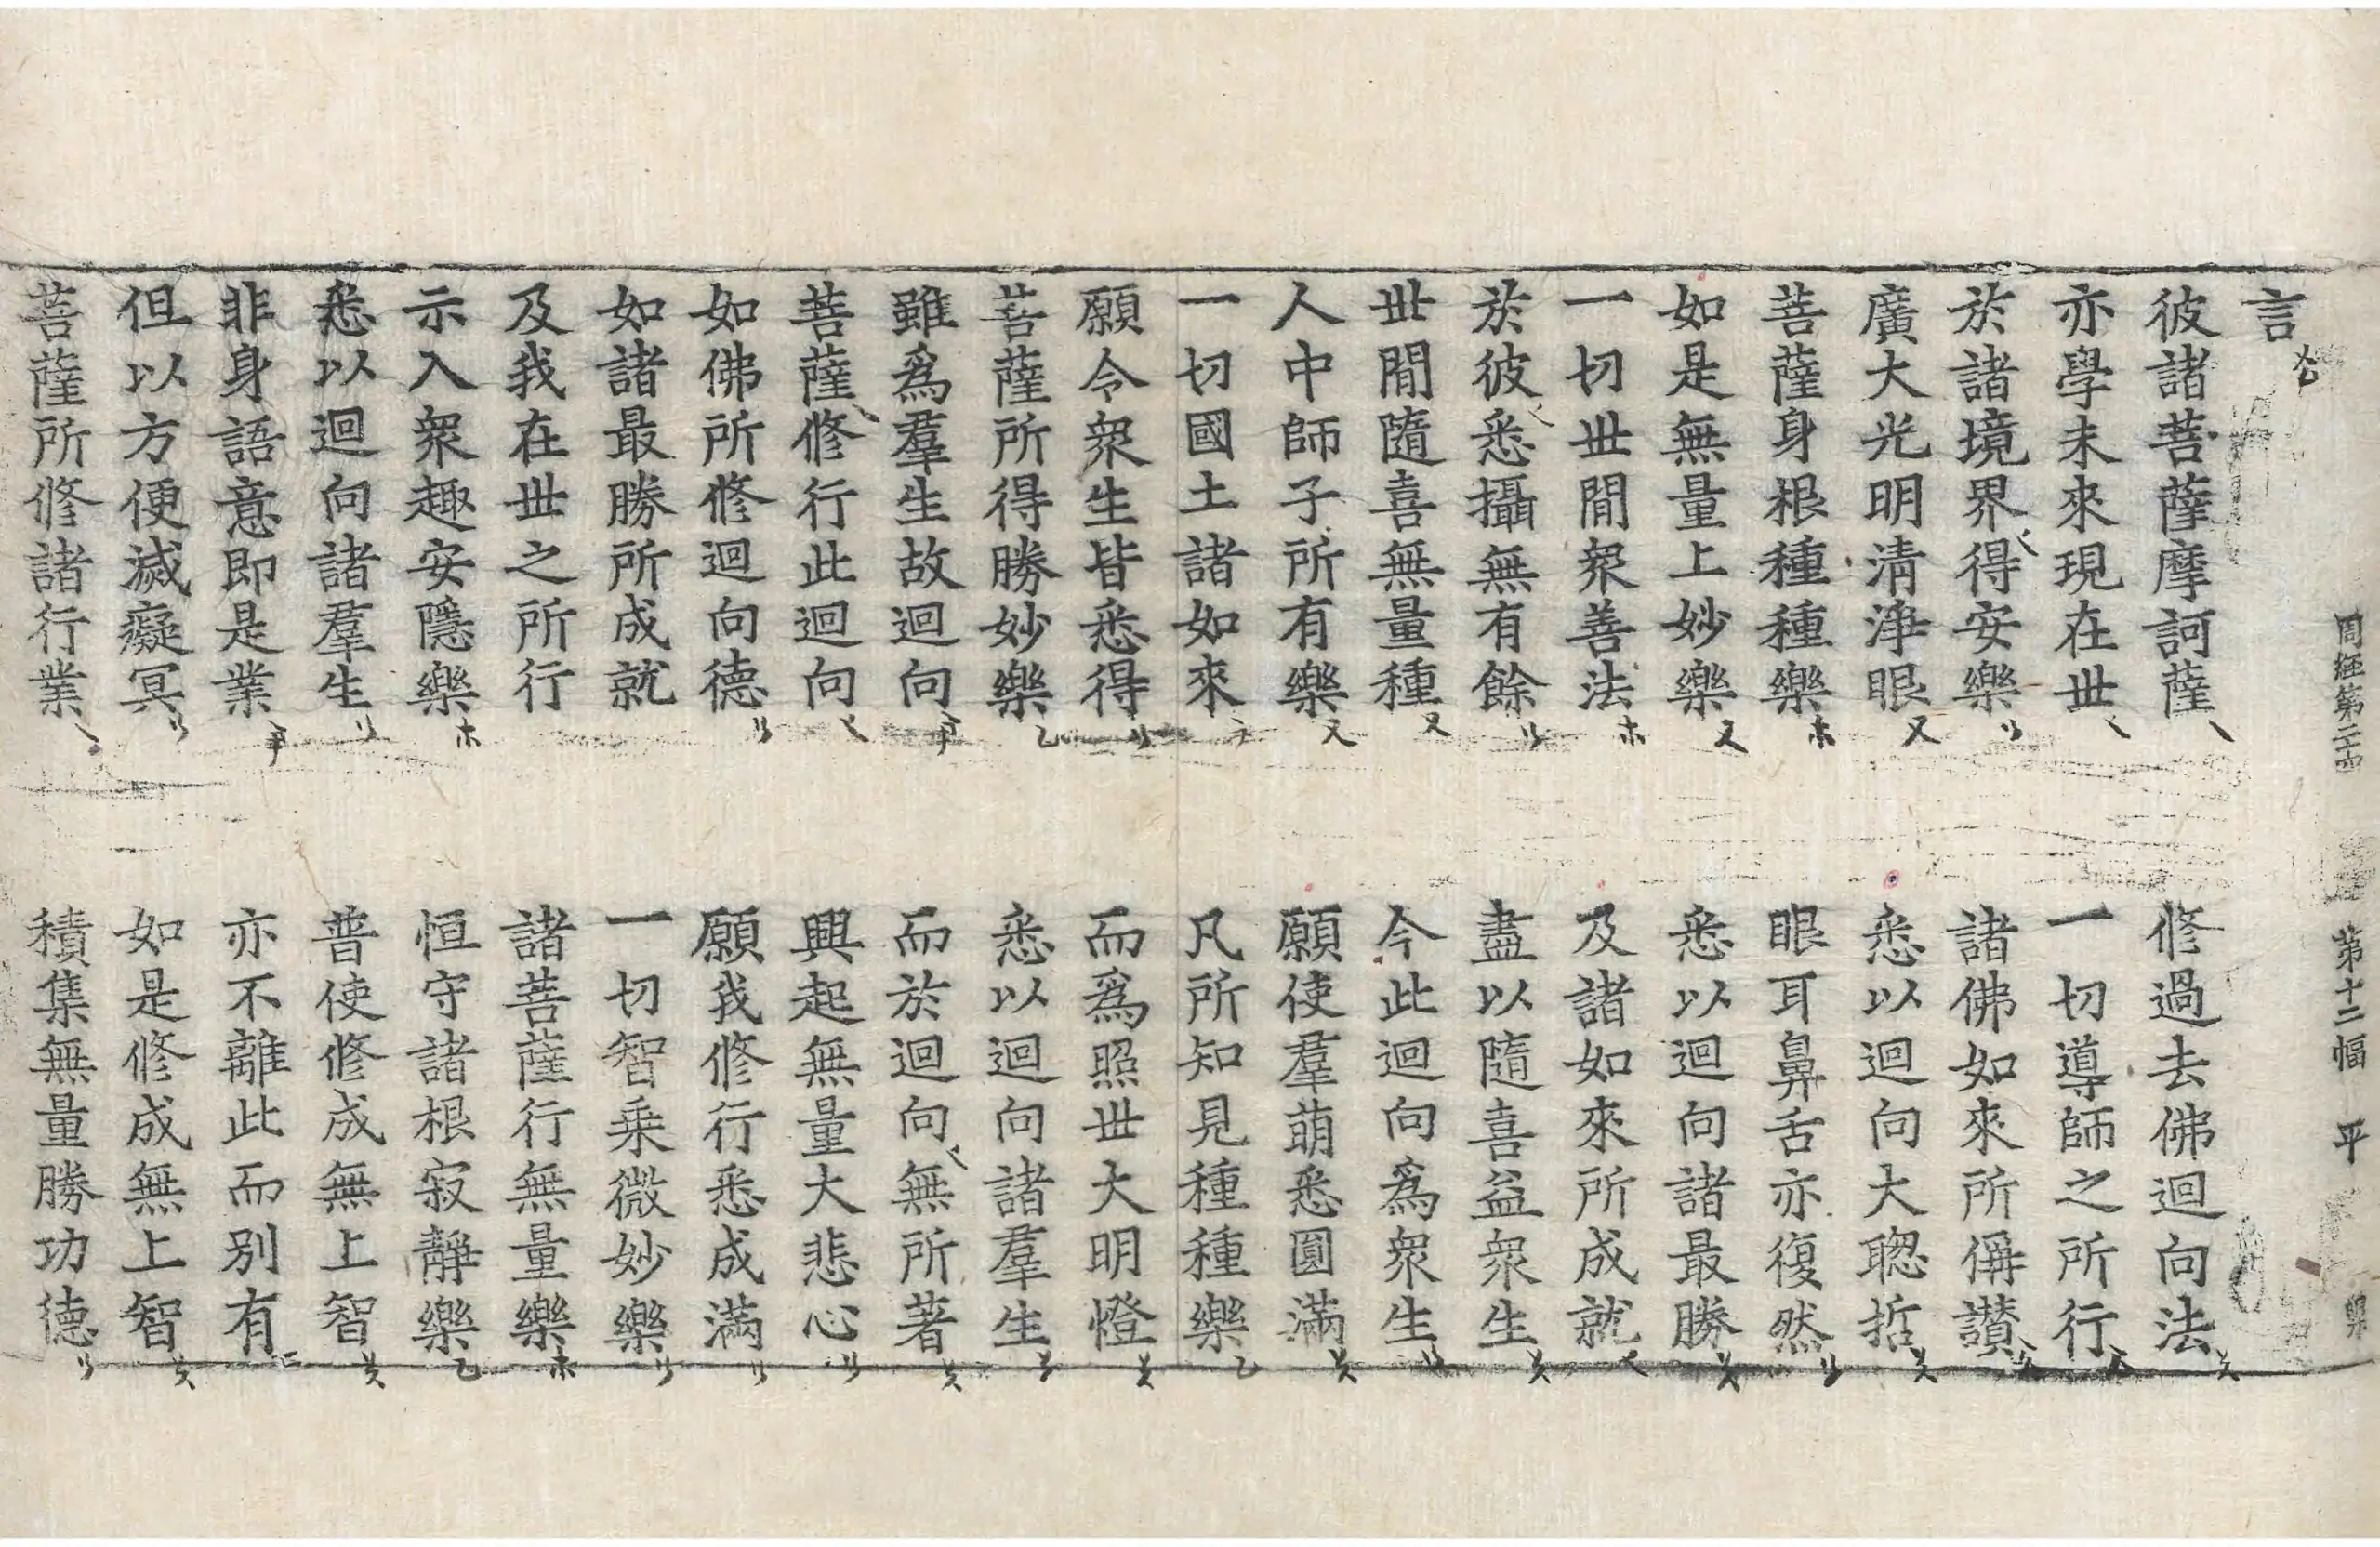 周經第二十四 第十二幅 平
言
彼諸菩薩摩訶薩 修過去佛迴向法
亦學未來現在世 一切導師之所行
於諸境界得安樂 諸佛如來所偁讃
廣大光明清淨眼 悉以迴向大聦哲
菩薩身根種種樂 眼耳鼻舌亦復然
如是無量上妙樂 悉以迴向諸最勝
一切世閒衆善法 及諸如來所成就
於彼悉攝無有餘 盡以隨喜益衆生
世閒隨喜無量種 今此迴向爲衆生
人中師子所有樂 願使羣萌悉圓滿
一切國土諸如來 凡所知見種種樂
願令衆生皆悉得 而爲照世大明燈
菩薩所得勝妙樂 悉以迴向諸羣生
雖爲羣生故迴向 而於迴向無所著
菩薩修行此迴向 興起無量大悲心
如佛所修迴向德 願我修行悉成滿
如諸最勝所成就 一切智乗微妙樂
及我在世之所行 諸菩薩行無量樂
示入衆趣安隱樂 恒守諸根寂靜樂
悉以迴向諸羣生 普使修成無上智
非身語意即是業 亦不離此而別有
但以方便滅癡冥 如是修成無上智
菩薩所修諸行業 積集無量勝功德